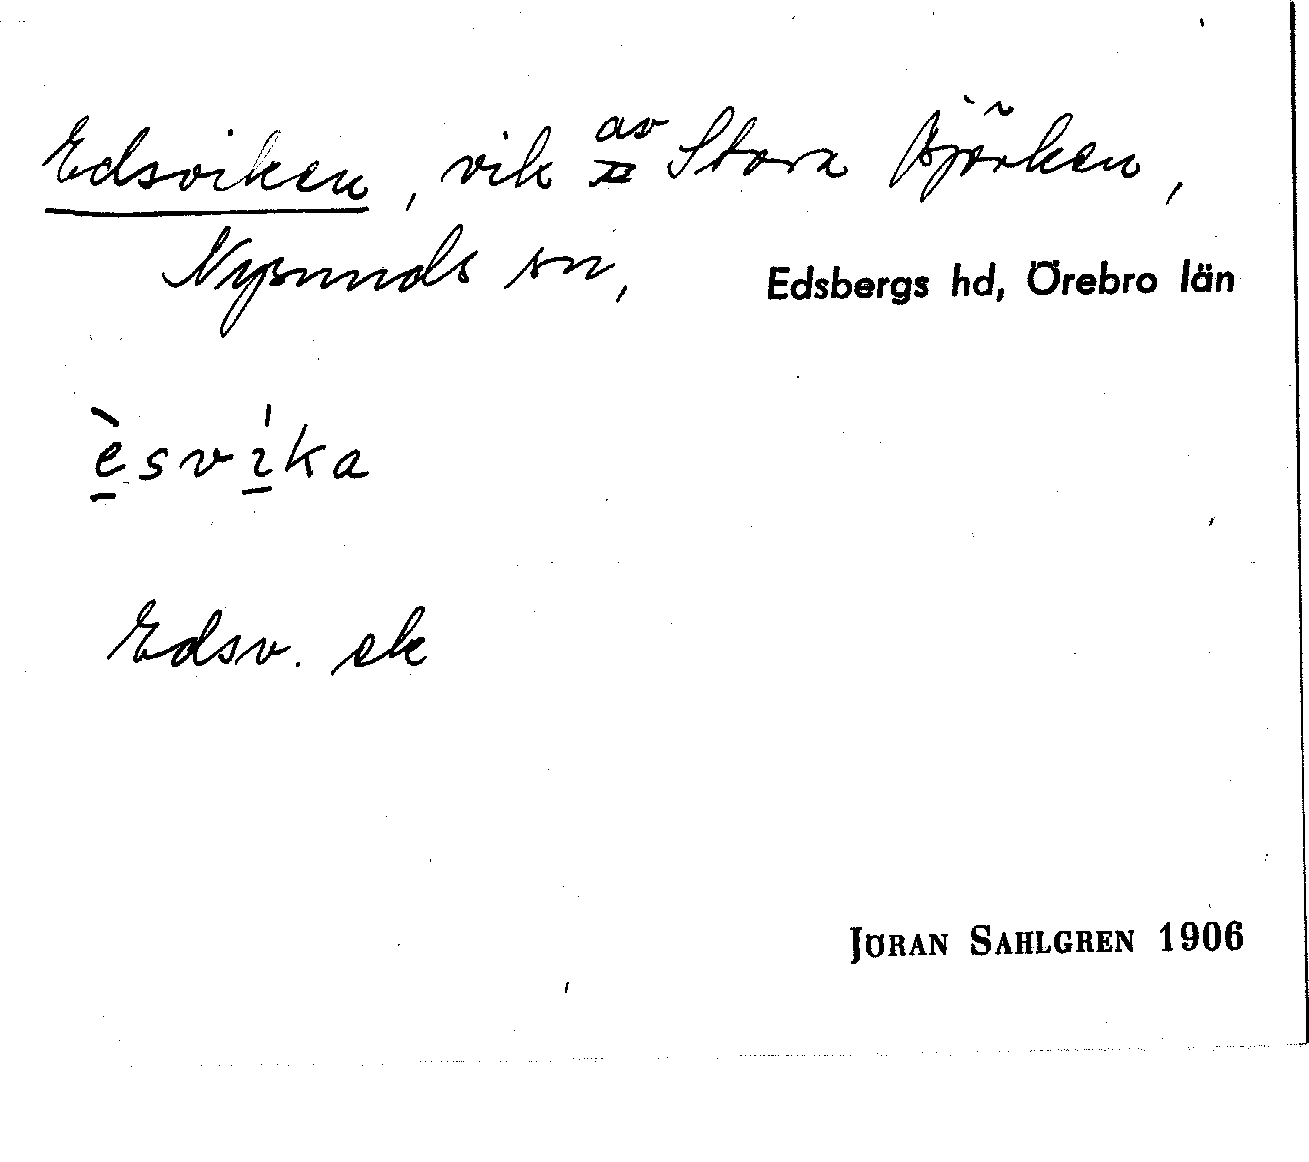 Edsviken, vik av Stora Björken,
Nysunds sn, Edsbergs hd, Örebro län
èsvíka
Edsv. ek
JÖRAN SAHLGREN 1906